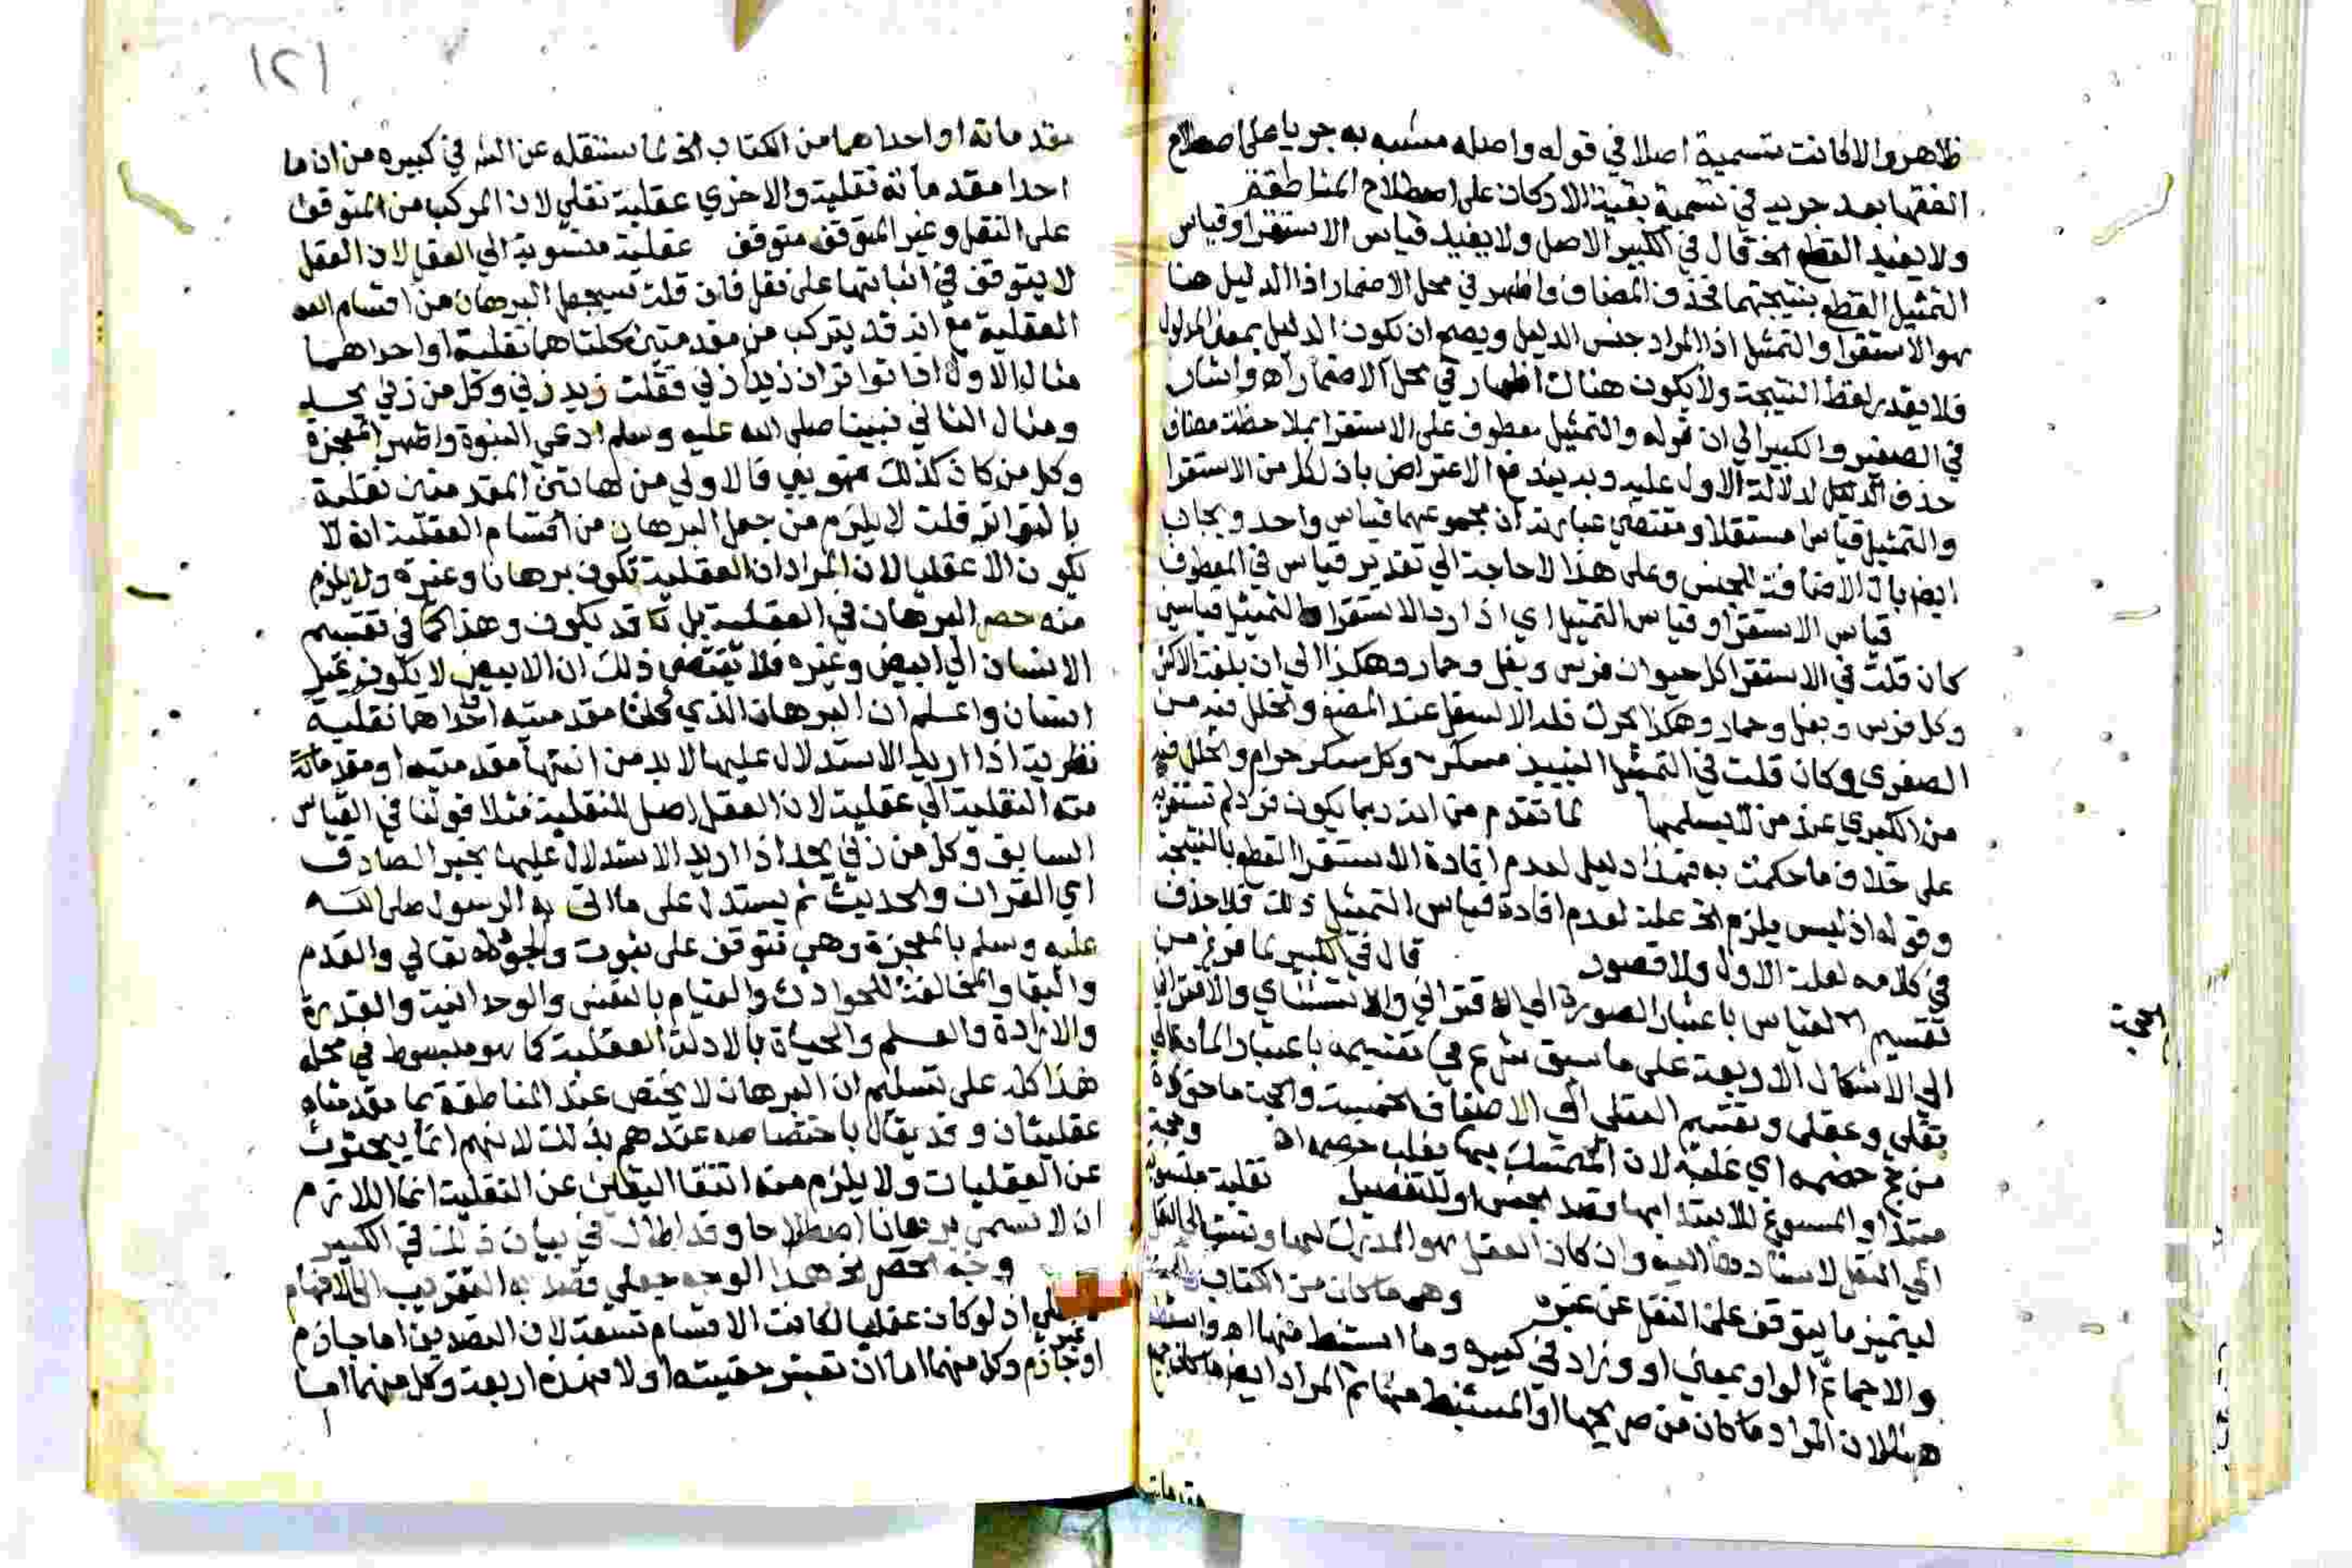 ظاهر والا لكانت تسمية اصلا في قوله واصله مشبه به جريا على اصطلاح
الفقها بعد جريه في تسمية بقية الاركان على اصطلاح المناطقة
ولا يفيد القطع الخ قال في الكبير الاصل ولا يفيد قياس الاستقرا وقياس
التمثيل القطع بنتيجتهما فحذف المضاف واظهر في محل الاضمار اذ الدليل هنا
هو الاستقرا والتمثيل اذ المراد جنس الدليل ويصح ان تكون الدليل بمعنى المدلول
فلا يقدر لفظ النتيجة ولا يكون هناك اظهار في محل الاضمار اه واشار
في الصغير والكبير الى ان قوله والتمثيل معطوف على الاستقرا بملاحظة مضاف
حذف لدلالة الاول عليه وبه يندفع الاعتراض بان لكل من الاستقرا
والتمثيل قياس مستقلا ومقتضى عبارته ان مجموعهما قياس واحد ويجاب
ايضا بان الاضافة للجنس وعلى هذا لا حاجة الي تقدير قياس في المعطوف
قياس الاستقرا وقياس التمثيل اي اذا رد الاستقرا والتمثيل قياسين
كان قلت في الاستقرا كل حيوان فرس وبغل وحمار وهكذا الي ان بلغت الاكثر
وكل فرس وبغل وحمار وهكذا يحرك فكه الاسفل عند المضغ والخلل فيه من
الصغرى وكان قلت في التمثيل النبيذ مسكر وكل مسكر حرام والخلل فيه
من الكبري عند من لا يسلمها لما تقدم من انه ربما يكون فرد لم تستقره
على خلاف ما حكمت به فهذا دليل لعدم افادة الاستقرا القطع بالنتيجة
وقوله اذ ليس يلزم الخ علة لعدم افادة قياس التمثيل ذلك فلا حذف
في كلامه لعلة الاول ولا قصور قال في الكبير لما فرغ من
تقسيم القياس باعتبار الصورة الي الاقتراني والاستثناي والاقتراني
الي الاشكال الاربعة على ما سبق شرع في تقسيمه باعتبار المادة الي
نقلي وعقلي وتقسيم العقلي الي الاصناف الخمسة والحجة ماخوذة
من حج خصمه اي غلبه لان المتمسك بها يغلب خصمه اه وحجة
مبتدا والمسوغ للابتدا بها قصد الجنس او للتفصيل نقلية منسوبة
الي النقل لاستنادها اليه وان كان العقل هو المدرك لها وتنسب الي النقل
ليتميز ما يتوقف على النقل عن غيره وهي ما كان من الكتاب والسنة
والاجماع الواو بمعنى او وزاد في كبيره وما استنبط منها اه
لان المراد ما كان من صريحها او المستنبط منها ثم المراد ايضا ما كان
الحجة
مقدماته
١٢١
مقدماته او احداهما من الكتاب الخ لما سننقله عن الش في كبيره من ان ما
احدا مقدماته نقلية والاخري عقلية نقلي لان المركب من المتوقف
على النقل وغير المتوقف متوقف عقلية منسوبة الي العقل لان العقل
لا يتوقف في اثباتها على نقل فان قلت سيجعل البرهان من اقسام
العقلية مع انه قد يتركب من مقدمتين كلتاهما نقلية او احداهما
مثال الاول اذا تواتر ان زيدا زني فقلت زيد زني وكل من زني يحد
ومثال الثاني نبينا صلى الله عليه وسلم ادعي النبوة واظهر المعجزة
وكل من كان كذلك فهو نبي فالاولي من هاتين المقدمتين نقلية
بالتواتر قلت لا يلزم من جعل البرهان من اقسام العقلية انه لا
يكون الا عقليا لان المراد ان العقلية تكون برهانا وغيره ولا يلزم
منه حصر البرهان في العقلية بل قد يكون وهذا كما في تقسيم
الانسان الي ابيض وغيره فلا يقتضي ذلك ان الابيض لا يكون غير
انسان واعلم ان البرهان الذي كلتا مقدمتيه او احداهما نقلية
نظرية اذا اريد الاستدلال عليها لا بد من انتها مقدمتيه او مقدماته
منه النقلية الي عقلية لان العقل اصل للنقلية فمثلا قولنا في القياس
السابق وكل من زني يحد اذا اريد الاستدلال عليها بخبر الصادق
اي القران والحديث ثم يستدل على ما اتى به الرسول صلى الله
عليه وسلم بالمعجزة وهي تتوقف على ثبوت وجوده تعالي والقدم
والبقا والمخالفة للحوادث والقيام بالنفس والوحدانية والقدرة
والارادة والعلم والحياة بالادلة العقلية كما هو مبسوط في محله
هذا كله على تسليم ان البرهان لا يختص عند المناطقة بما مقدمتاه
عقليتان وقد يقال باختصاصه عندهم بذلك لانهم انما يبحثون
عن العقليات ولا يلزم منه انتفا اليقين عن النقلية انما اللازم
ان لا تسمى برهانا اصطلاحا وقد اطال في بيان ذلك في الكبير
وجه الحصر الخ هذا الوجه جعلي قصد به التقريب الى الافهام
اذ لو كان عقليا لكانت الاقسام تسعة لان التصديق اما جازم
او غير جازم وكل منهما اما ان تعتبر حقيته او لا فهذه اربعة وكل منهما اما